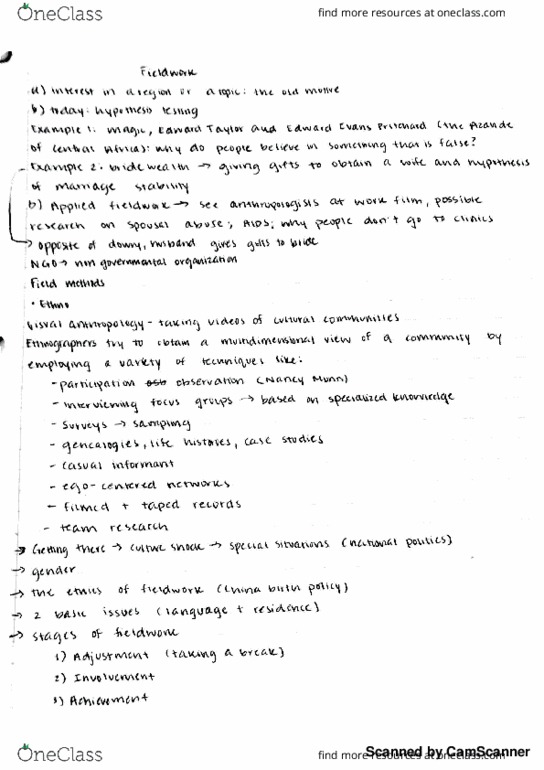 OneClass
find more resources at oneclass.com
Fieldwork
a) interest in a region or a topic: the old motive
b) today: hypothesis testing
Example 1: magic, Edward Taylor and Edward Evans Pritchard (the Azande
of Central Africa): why do people believe in something that is false?
Example 2: bride wealth → giving gifts to obtain a wife and hypothesis
of marriage stability
b) Applied fieldwork → see anthropologists at work film, possible
research on spousal abuse; AIDS; why people don't go to clinics
→ opposite of dowry, husband gives gifts to bride
NGO → non governmental organization
Field methods
• Ethno
Visual anthropology - taking videos of cultural communities
Ethnographers try to obtain a multidimensional view of a community by
employing a variety of techniques like:
- participation observation (Nancy Munn)
- interviewing focus groups → based on specialized knowledge
- surveys → sampling
- genealogies, life histories, case studies
- casual informant
- ego-centered networks
- filmed + taped records
- team research
→ Getting there → culture shock → special situations (national politics)
→ gender
→ the ethics of fieldwork (China birth policy)
→ 2 basic issues (language + residence)
→ stages of fieldwork
1) Adjustment (taking a break)
2) Involvement
3) Achievement
OneClass
find more resources at oneclass.com
Scanned by CamScanner